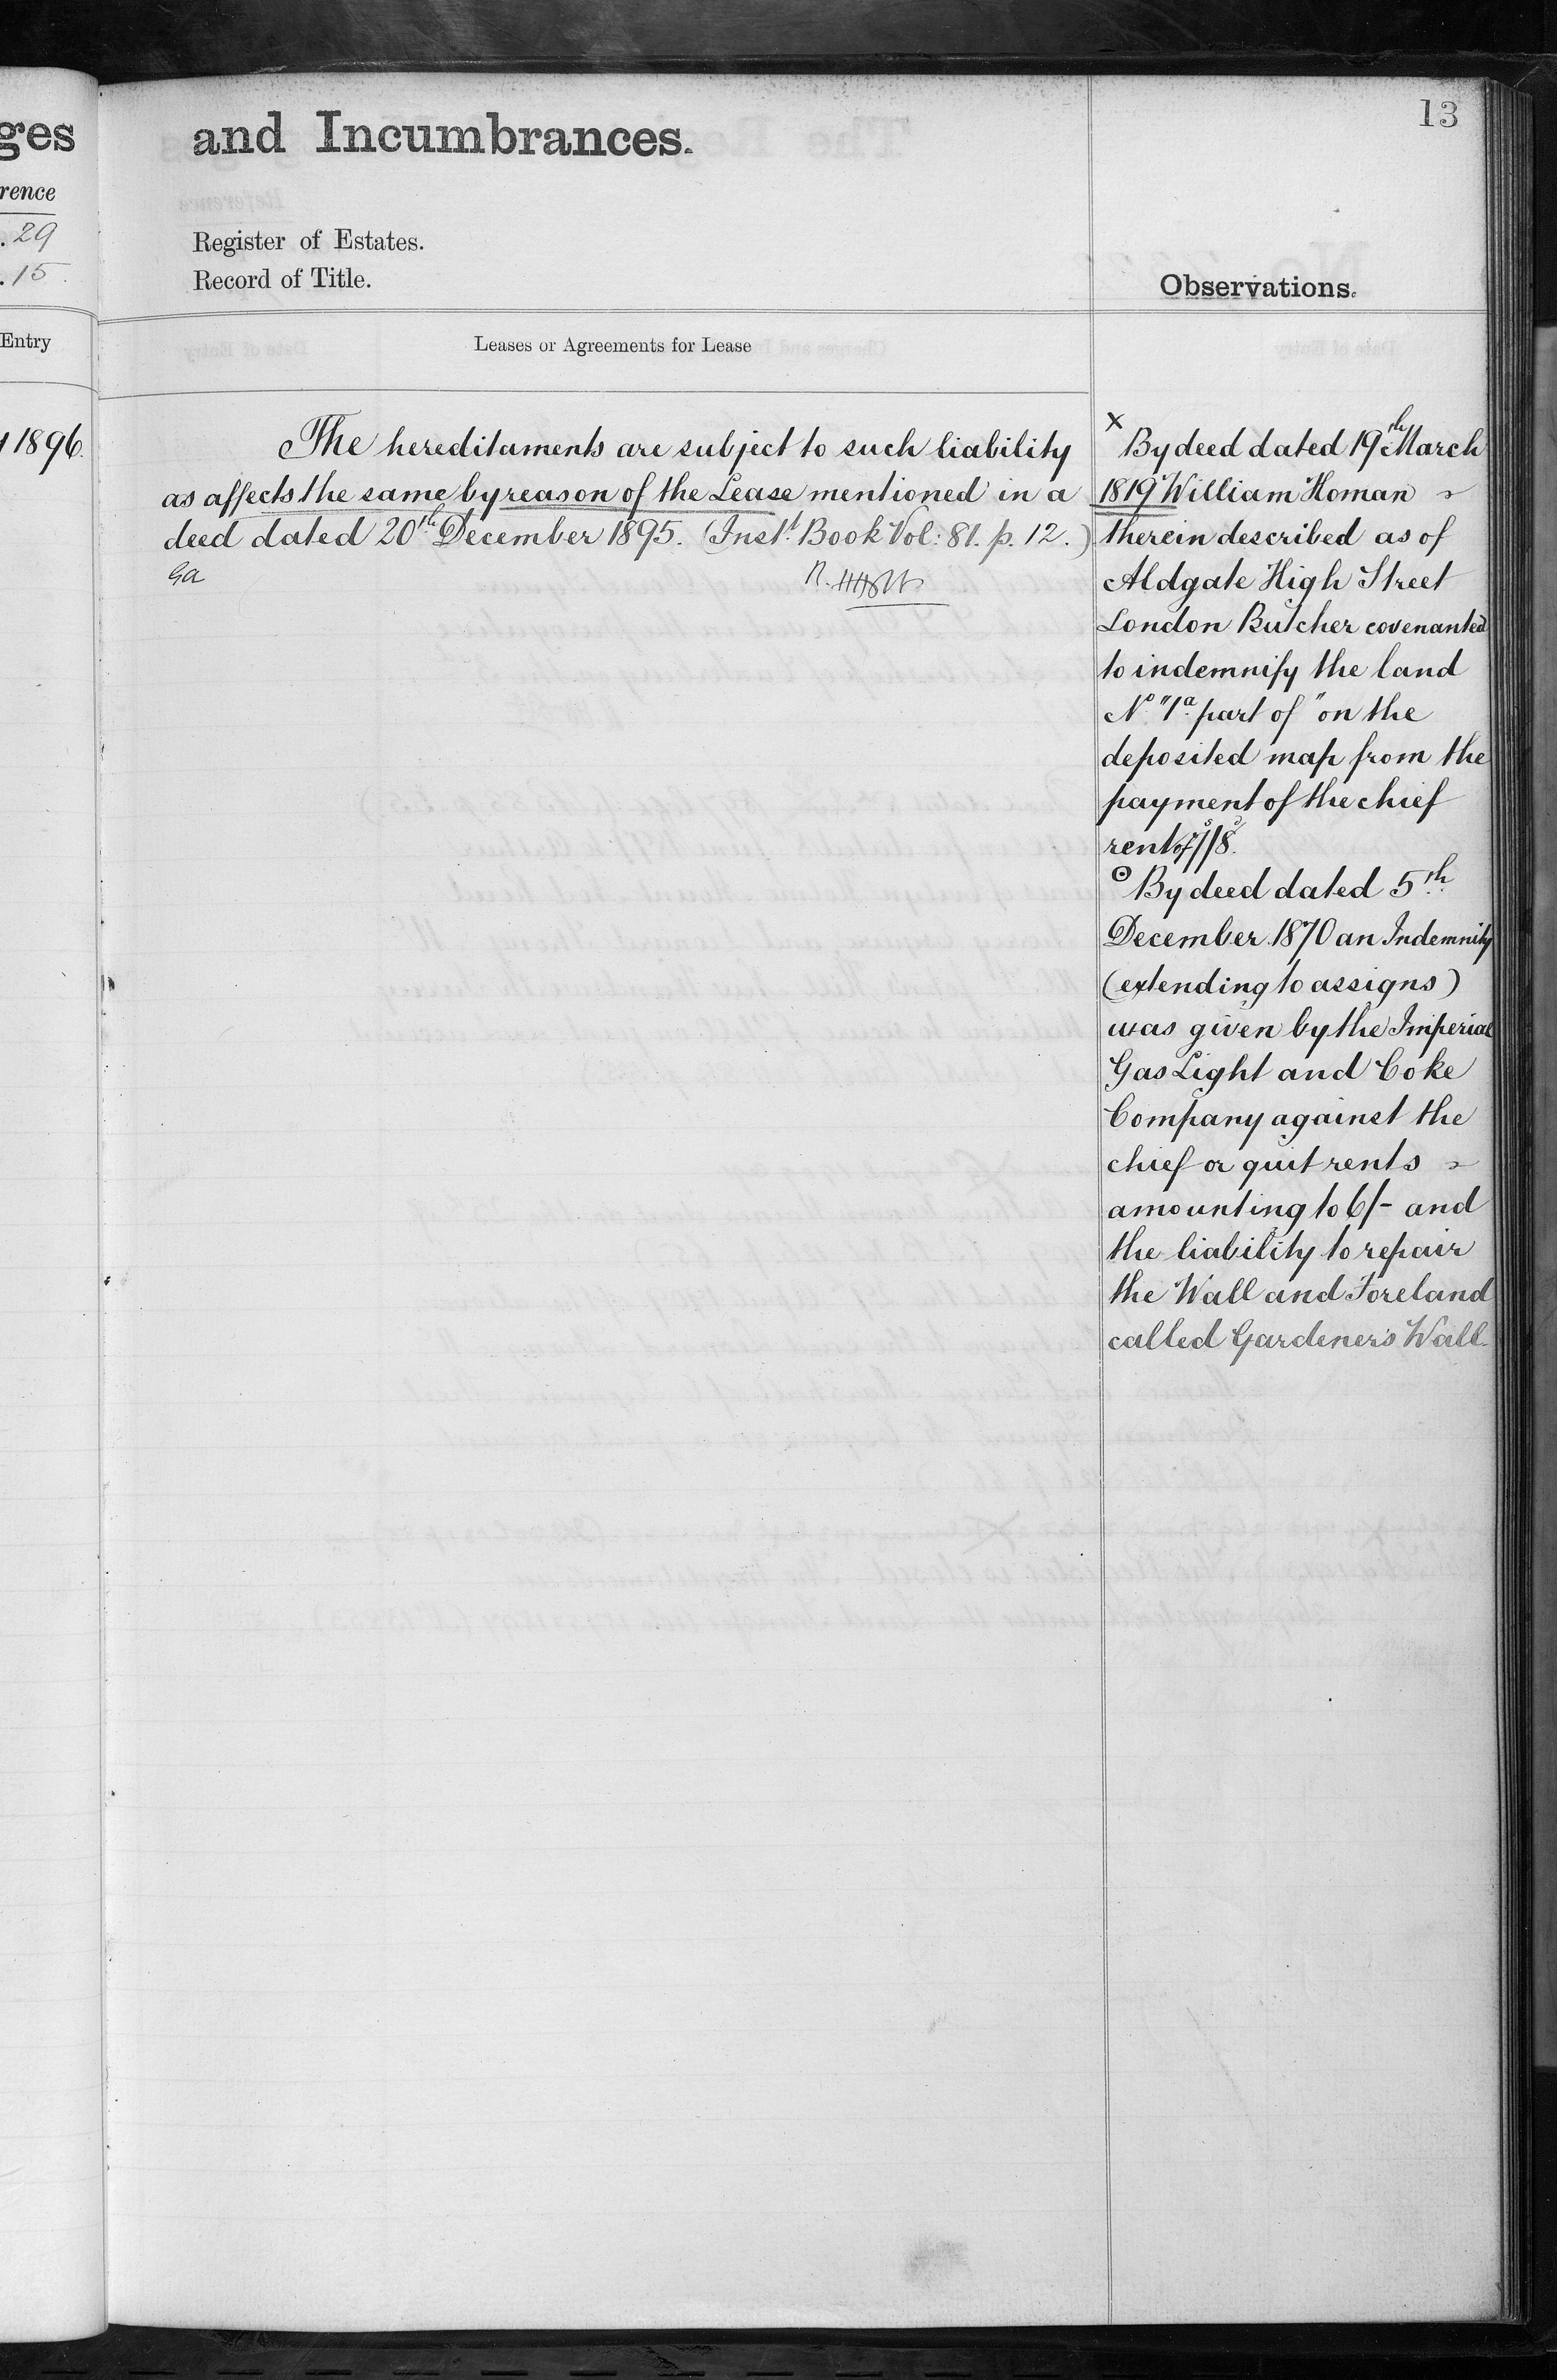 ges
rence
.29
.15.
Entry
1896.
13
and Incumbrances.
Register of Estates.
Record of Title.
Observations.
Leases or Agreements for Lease
The hereditaments are subject to such liability
as affects the same by reason of the Lease mentioned in a
deed dated 20th December 1895. (Inst. Book Vol: 81. p. 12.)
Ga
x By deed dated 19th March
1819 William Homan
therein described as of
Aldgate High Street
London Butcher covenanted
to indemnify the land
No "1a part of" on the
deposited map from the
payment of the chief
rent of
⊙ By deed dated 5th
December 1870 an Indemnity
(extending to assigns)
was given by the Imperial
Gas Light and Coke
Company against the
chief or quit rents
amounting to 6/- and
the liability to repair
the Wall and Foreland
called Gardener's Wall.